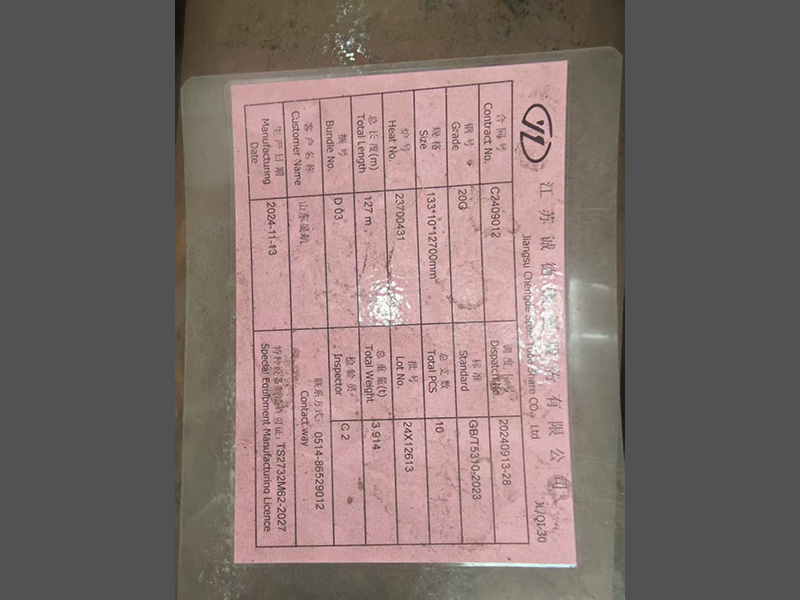 江苏诚德 有限公司
Jiangsu Chengde Steel Tube Share CO., Ltd
JL/QI-30
合同号 Contract No. C2409012 调度 Dispatch No. 20240913-28
钢号 Grade 20G 标准 Standard GB/T5310-2023
规格 Size 133*10*12700mm 总支数 Total PCS 10
炉号 Heat No. 23700431 批号 Lot No. 24X12613
总长度(m) Total Length 127 m 总重量(t) Total Weight 3.914
捆号 Bundle No. D 03 检验员 Inspector C 2
客户名称 Customer Name 山东 联系方式: 0514-86529012 Contact way
生产日期 Manufacturing Date 2024-11-13 特种设备制造许可证: TS2732M62-2027 Special Equipment Manufacturing Licence